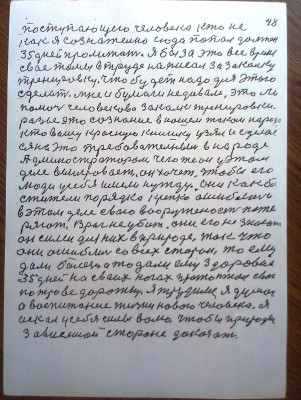 48
поступающего человека кто не
как я сознательно сюда попал должон
35 дней пролежать. Я бы за это все время
свое теми в труде написал за закалку
тренировку, что будет надо для этого
сделать. мне и бумаги не давали, это ли
помоч человекова закали и тренировки.
разве это сознание в нашем таком народе
кто вашу красную книжку узял и сделал
ся на это требовательным в народе
Администратором чего же он у этом
деле выигровает, он хочет, чтобы его
люди у себя имели нужду. Они как бы
стители порядка крепко ошибались
в этом деле свою вооруженость поте
ряют, Враг не убит, они его не знают
он силен для них в природе, так что
они ошиблись со всех сторон, то ему
дали болезь а то дали ему Здоровья
35 дней на своих ногах протоптал свою
потраве дорожку. Я трудился я думал
о воспитание жизни нового человека. Я
искал у себя силы волю чтобы природе
Зависиной стороне доказат.